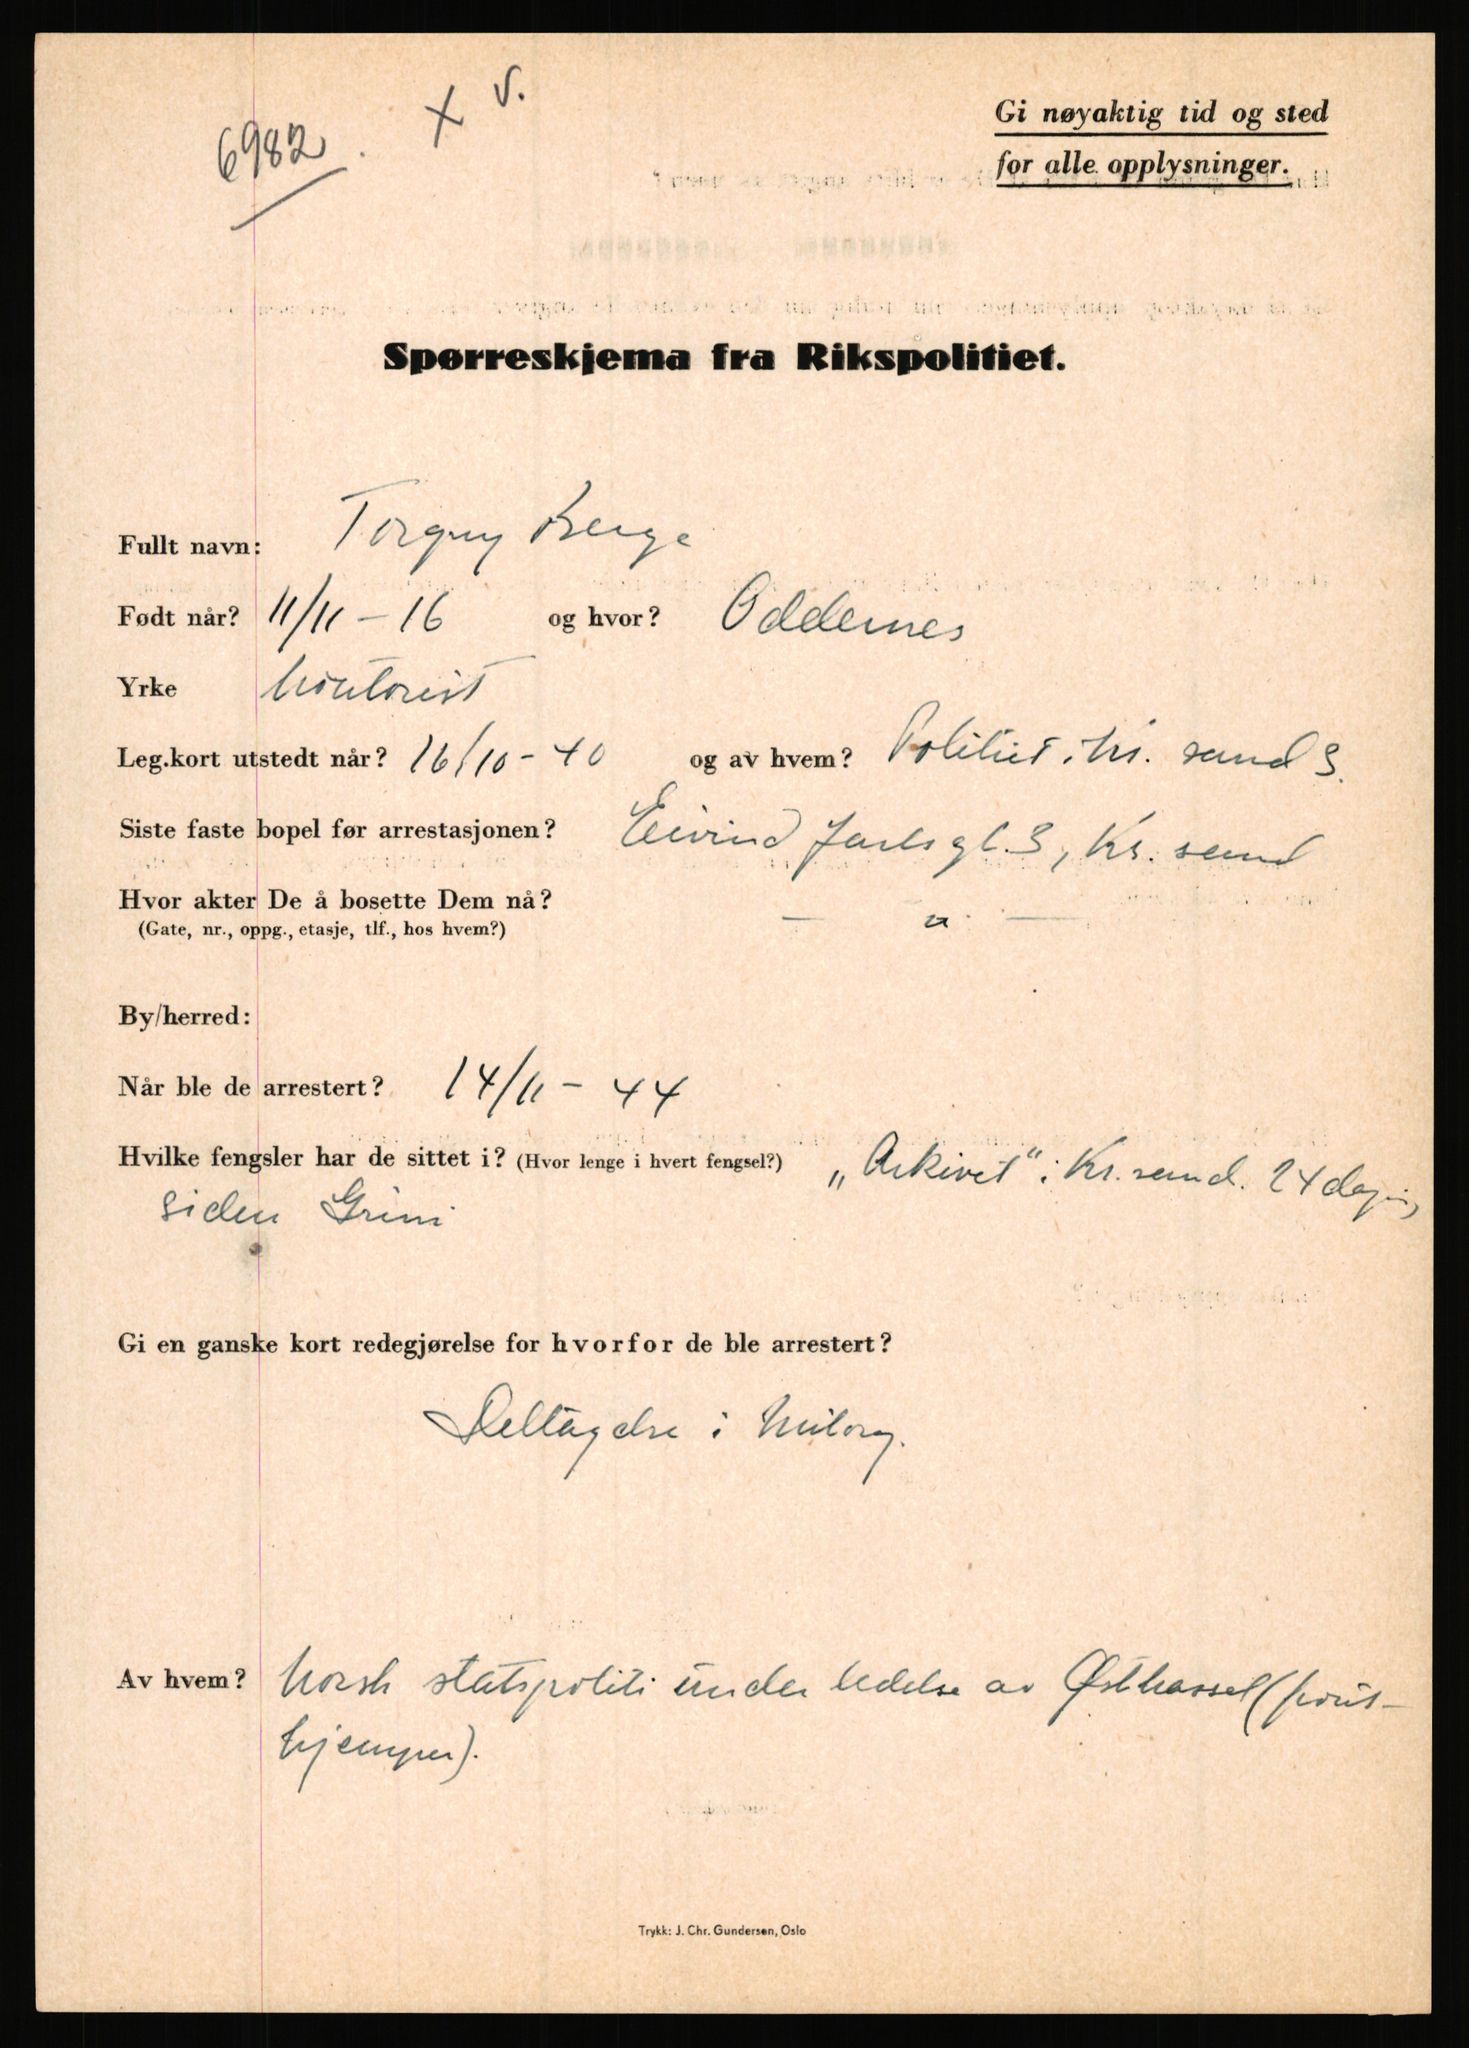 6982. x v.
Gi nøyaktig tid og sted
for alle opplysninger.
Spørreskjema fra Rikspolitiet.
Fullt navn: Torguy Berge
Født når? 11/11 - 16 og hvor? Oddernes
Yrke kontorist
Leg.kort utstedt når? 16/10 - 40 og av hvem? Politiet i Kr. sand S.
Siste faste bopel før arrestasjonen? Eivind Jarls gt. 3, Kr. sand
Hvor akter De å bosette Dem nå? — " —
(Gate, nr., oppg., etasje, tlf., hos hvem?)
By/herred:
Når ble de arrestert? 14/11 - 44
Hvilke fengsler har de sittet i? (Hvor lenge i hvert fengsel?) „Arkivet" i Kr. sand. 24 dager,
siden Grini
Gi en ganske kort redegjørelse for hvorfor de ble arrestert?
Deltagelse i Milorg.
Av hvem? Norsk statspoliti under ledelse av Østhassel (front-
kjemper).
Trykk: J. Chr. Gundersen, Oslo